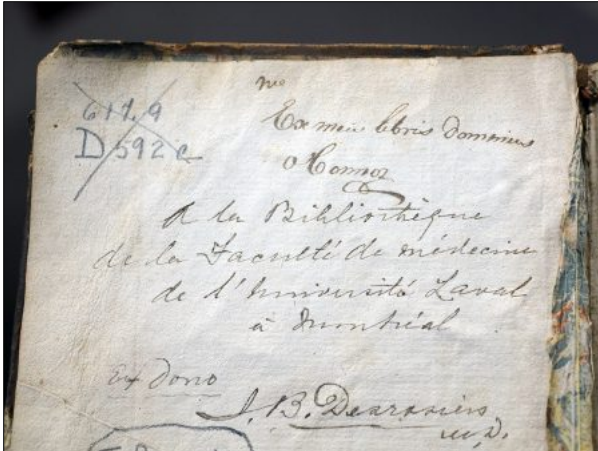 617.9
D592e
Ex meis libris Dominicus
O Connor
A la Bibliothèque
de la Faculté de médecine
de l'Université Laval
à Montréal
Ex Dono
J. B. Desrosiers
M.D.